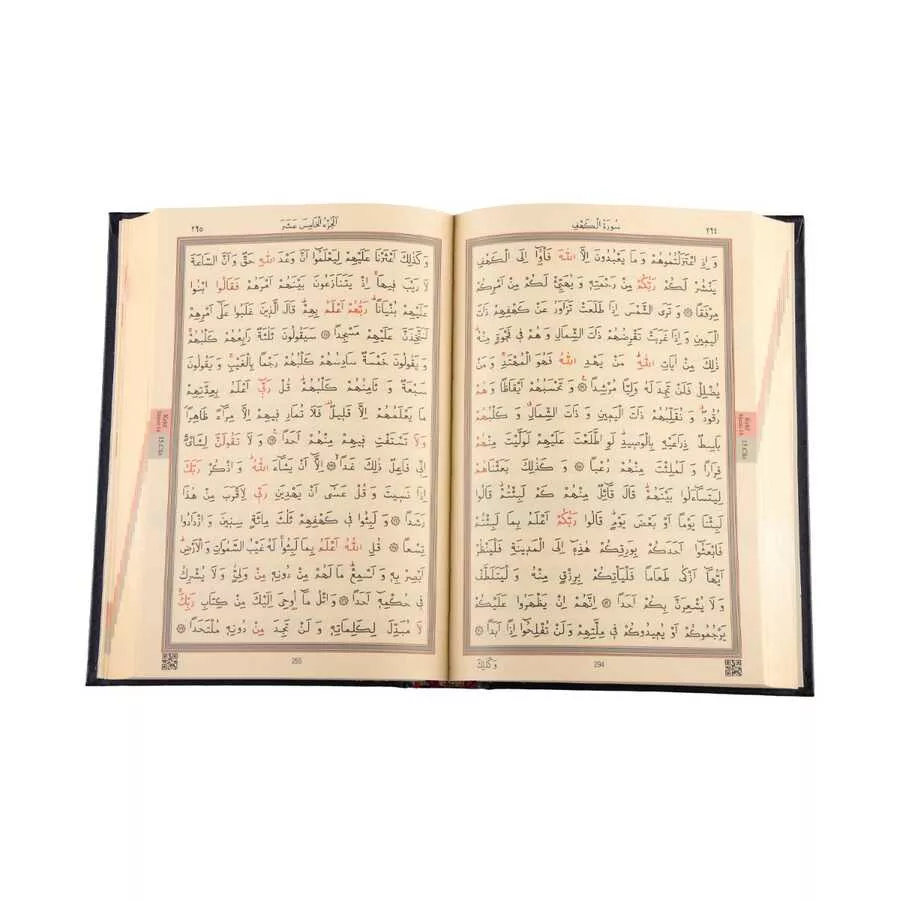 سُورَةُ الْكَهْفِ
٢٩٤
وَ اِذِ اعْتَزَلْتُمُوهُمْ وَ مَا يَعْبُدُونَ اِلَّا اللّٰهَ فَأْوُۤا اِلَى الْكَهْفِ
يَنْشُرْ لَكُمْ رَبُّكُمْ مِنْ رَحْمَتِهٖ وَ يُهَيِّئْ لَكُمْ مِنْ اَمْرِكُمْ
مِرْفَقًا ۞ وَ تَرَى الشَّمْسَ اِذَا طَلَعَتْ تَزَاوَرُ عَنْ كَهْفِهِمْ ذَاتَ
الْيَمٖينِ وَ اِذَا غَرَبَتْ تَقْرِضُهُمْ ذَاتَ الشِّمَالِ وَ هُمْ فٖى فَجْوَةٍ مِنْهُ
ذٰلِكَ مِنْ اٰيَاتِ اللّٰهِ مَنْ يَهْدِ اللّٰهُ فَهُوَ الْمُهْتَدِ وَ مَنْ
يُضْلِلْ فَلَنْ تَجِدَ لَهُ وَلِيًّا مُرْشِدًا ۞ وَ تَحْسَبُهُمْ اَيْقَاظًا وَ هُمْ
رُقُودٌ وَ نُقَلِّبُهُمْ ذَاتَ الْيَمٖينِ وَ ذَاتَ الشِّمَالِ وَ كَلْبُهُمْ
بَاسِطٌ ذِرَاعَيْهِ بِالْوَصٖيدِ لَوِ اطَّلَعْتَ عَلَيْهِمْ لَوَلَّيْتَ مِنْهُمْ
فِرَارًا وَ لَمُلِئْتَ مِنْهُمْ رُعْبًا ۞ وَ كَذٰلِكَ بَعَثْنَاهُمْ
لِيَتَسَٓاءَلُوا بَيْنَهُمْ قَالَ قَٓائِلٌ مِنْهُمْ كَمْ لَبِثْتُمْ قَالُوا
لَبِثْنَا يَوْمًا اَوْ بَعْضَ يَوْمٍ قَالُوا رَبُّكُمْ اَعْلَمُ بِمَا لَبِثْتُمْ
فَابْعَثُٓوا اَحَدَكُمْ بِوَرِقِكُمْ هٰذِهٖٓ اِلَى الْمَدٖينَةِ فَلْيَنْظُرْ
اَيُّهَٓا اَزْكٰى طَعَامًا فَلْيَأْتِكُمْ بِرِزْقٍ مِنْهُ وَ لْيَتَلَطَّفْ
وَ لَا يُشْعِرَنَّ بِكُمْ اَحَدًا ۞ اِنَّهُمْ اِنْ يَظْهَرُوا عَلَيْكُمْ
يَرْجُمُوكُمْ اَوْ يُعٖيدُوكُمْ فٖى مِلَّتِهِمْ وَ لَنْ تُفْلِحُٓوا اِذًا اَبَدًا ۞
294
وَ كَذٰلِكَ
اَلْجُزْءُ الْخَامِسَ عَشَرَ
٢٩٥
وَ كَذٰلِكَ اَعْثَرْنَا عَلَيْهِمْ لِيَعْلَمُٓوا اَنَّ وَعْدَ اللّٰهِ حَقٌّ وَ اَنَّ السَّاعَةَ
لَا رَيْبَ فٖيهَا اِذْ يَتَنَازَعُونَ بَيْنَهُمْ اَمْرَهُمْ فَقَالُوا ابْنُوا
عَلَيْهِمْ بُنْيَانًا رَبُّهُمْ اَعْلَمُ بِهِمْ قَالَ الَّذٖينَ غَلَبُوا عَلٰٓى اَمْرِهِمْ
لَنَتَّخِذَنَّ عَلَيْهِمْ مَسْجِدًا ۞ سَيَقُولُونَ ثَلٰثَةٌ رَابِعُهُمْ كَلْبُهُمْ
وَ يَقُولُونَ خَمْسَةٌ سَادِسُهُمْ كَلْبُهُمْ رَجْمًا بِالْغَيْبِ وَ يَقُولُونَ
سَبْعَةٌ وَ ثَامِنُهُمْ كَلْبُهُمْ قُلْ رَبّٖٓى اَعْلَمُ بِعِدَّتِهِمْ
مَا يَعْلَمُهُمْ اِلَّا قَلٖيلٌ فَلَا تُمَارِ فٖيهِمْ اِلَّا مِرَٓاءً ظَاهِرًا
وَ لَا تَسْتَفْتِ فٖيهِمْ مِنْهُمْ اَحَدًا ۞ وَ لَا تَقُولَنَّ لِشَا۟یْءٍ
اِنّٖى فَاعِلٌ ذٰلِكَ غَدًا ۞ اِلَّٓا اَنْ يَشَٓاءَ اللّٰهُ وَ اذْكُرْ رَبَّكَ
اِذَا نَسٖيتَ وَ قُلْ عَسٰٓى اَنْ يَهْدِيَنِ رَبّٖى لِاَقْرَبَ مِنْ هٰذَا
رَشَدًا ۞ وَ لَبِثُوا فٖى كَهْفِهِمْ ثَلٰثَ مِائَةٍ سِنٖينَ وَ ازْدَادُوا
تِسْعًا ۞ قُلِ اللّٰهُ اَعْلَمُ بِمَا لَبِثُوا لَهُ غَيْبُ السَّمٰوَاتِ وَ الْاَرْضِ
اَبْصِرْ بِهٖ وَ اَسْمِعْ مَا لَهُمْ مِنْ دُونِهٖ مِنْ وَلِيٍّ وَ لَا يُشْرِكُ
فٖى حُكْمِهٖٓ اَحَدًا ۞ وَ اتْلُ مَٓا اُوحِیَ اِلَيْكَ مِنْ كِتَابِ رَبِّكَ
لَا مُبَدِّلَ لِكَلِمَاتِهٖ وَ لَنْ تَجِدَ مِنْ دُونِهٖ مُلْتَحَدًا ۞
295